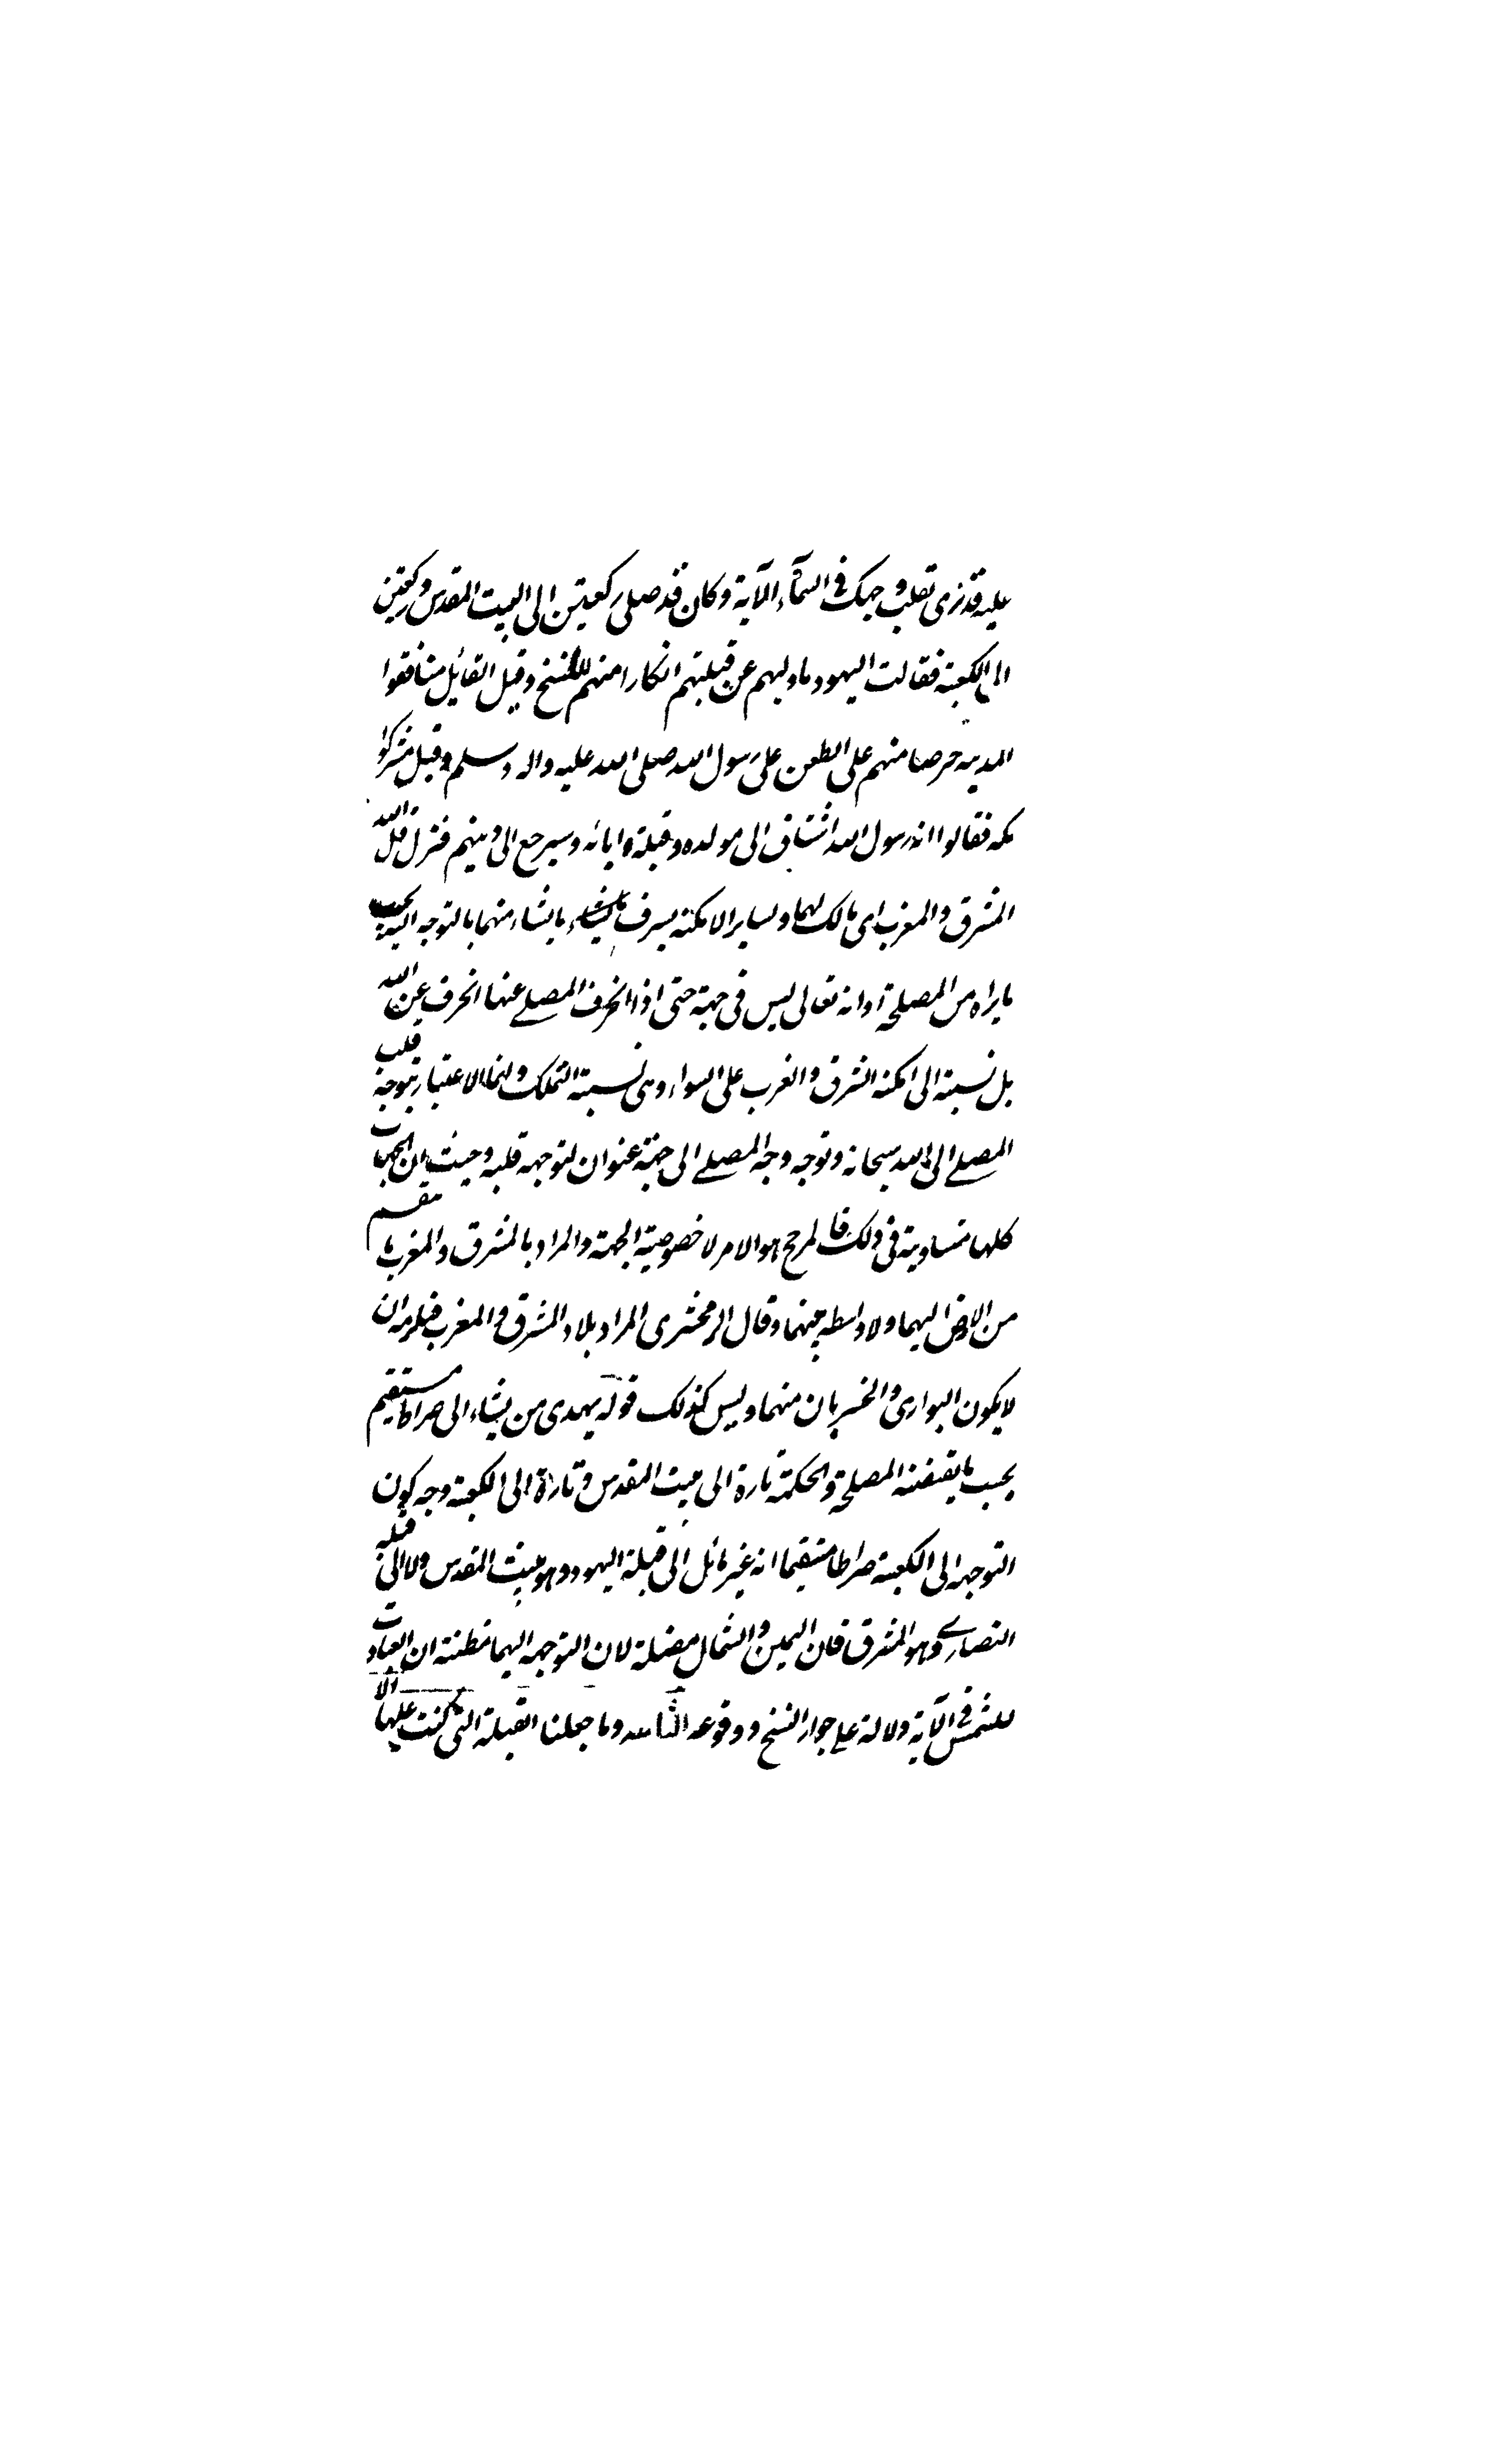 عليه قد نرى تقلب وجهك في السمآء الآية وكان قد صلى ركعتين الى البيت المقدس وركعتين
الى الكعبة فقالت اليهود ما وليهم عن قبلتهم انكارا منهم للنسخ وقيل القائل منافقوا
المدينة حرصا منهم على الطعن على رسول الله صلى الله عليه واله وسلم وقيل مشركوا
مكه فقالوا ان رسول الله اشتاق الى مولده وقبلة ابائه وسيرجع الى دينهم فنزل قل لله
المشرق والمغرب اى مالك لهما ولساير الامكنة يسرف ما يشاء منهما بالتوجه اليه بحسب
ما يراه من المصلحة او انه تعالى ليس في جهة حتى اذا انحرف المصلے عنها انحرف عن الله
بل نسبته الى امكنه الشرق والغرب على السواء وهى نسبته التملك وانما الاعتبار بتوجه قلب
المصلے الى الله سبحانه وتوجه وجه المصلے الى جهة عنوان لتوجهه قلبه وحيث ان الجهات
كلها متساوية في ذلك فالمرجح هو الامر لا خصوصية الجهة والمراد بالمشرق والمغرب ما يقسم
من الارض اليهما ولا واسطه بينهما وقال الزمخشرى المراد بلاد المشرق والمغرب فيلزمه ان
لا يكون البوارى والخربان منهما وليس كذلك قوله يهدى من يشاء الى صراط مستقيم
بحسب ما يقتضيه المصلحة والحكمة تارة الى بيت المقدس وتارة الى الكعبة وجه كون
التوجه الى الكعبة صراطا مستقيما انه غير مائل الى قبلة اليهود وهو بيت المقدس ولا الى قبله
النصارے وهو المشرق فان اليمين والشمال مضلة لان التوجه اليهما مظنة ان العبادت
للشمس في الآية دلالة علے جواز النسخ ووقوعه وما جعلنا القبلة التى كنت عليها الا